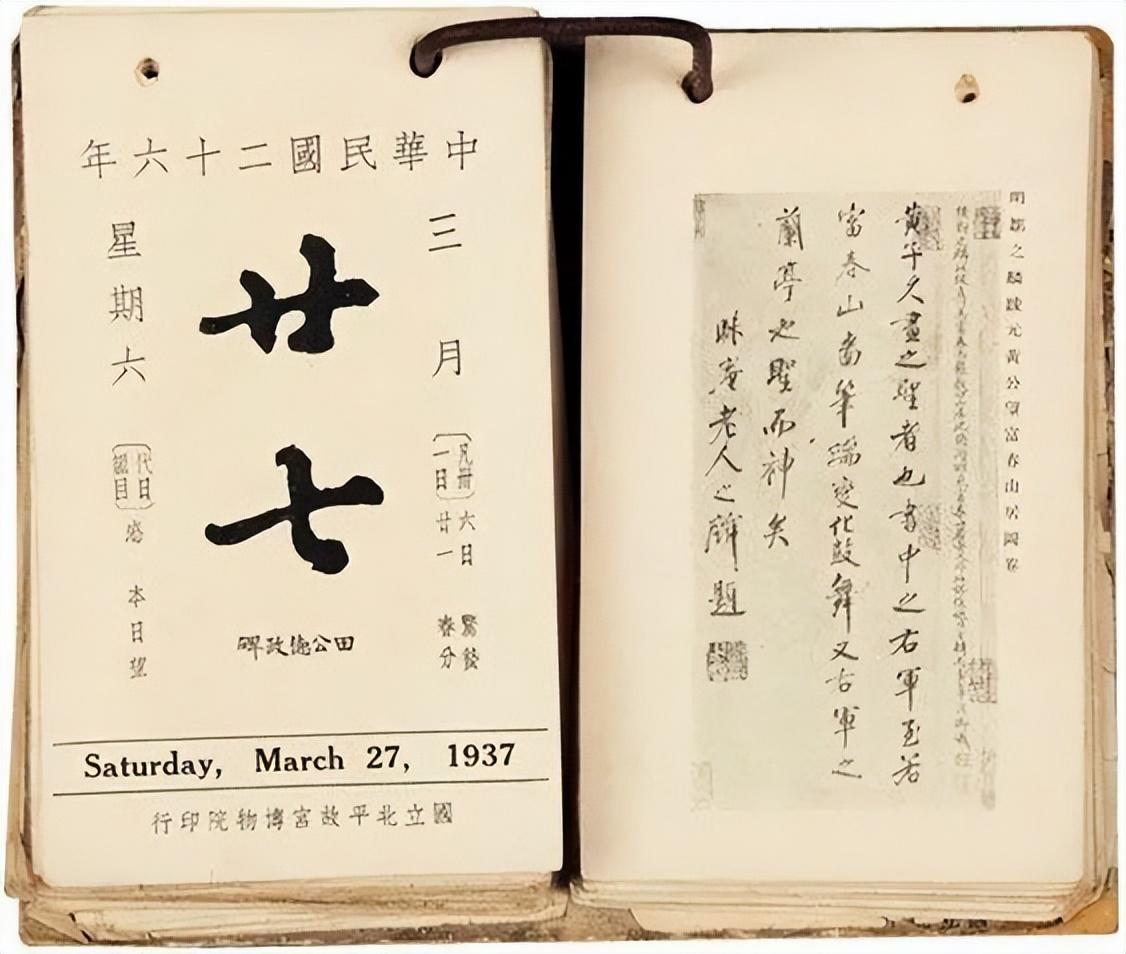 中華民國二十六年
三月
凡卅一日
六日 驚蟄
廿一 春分
廿七
田公德政碑
星期六
代日
本日望
Saturday, March 27, 1937
國立北平故宮博物院印行
明鄒之麟跋元黃公望富春山居圖卷
黃子久畫之聖者也書中之右軍至若
富春山啚筆端變化鼓舞又右軍之
蘭亭也聖而神矣
昧菴老人之麟題